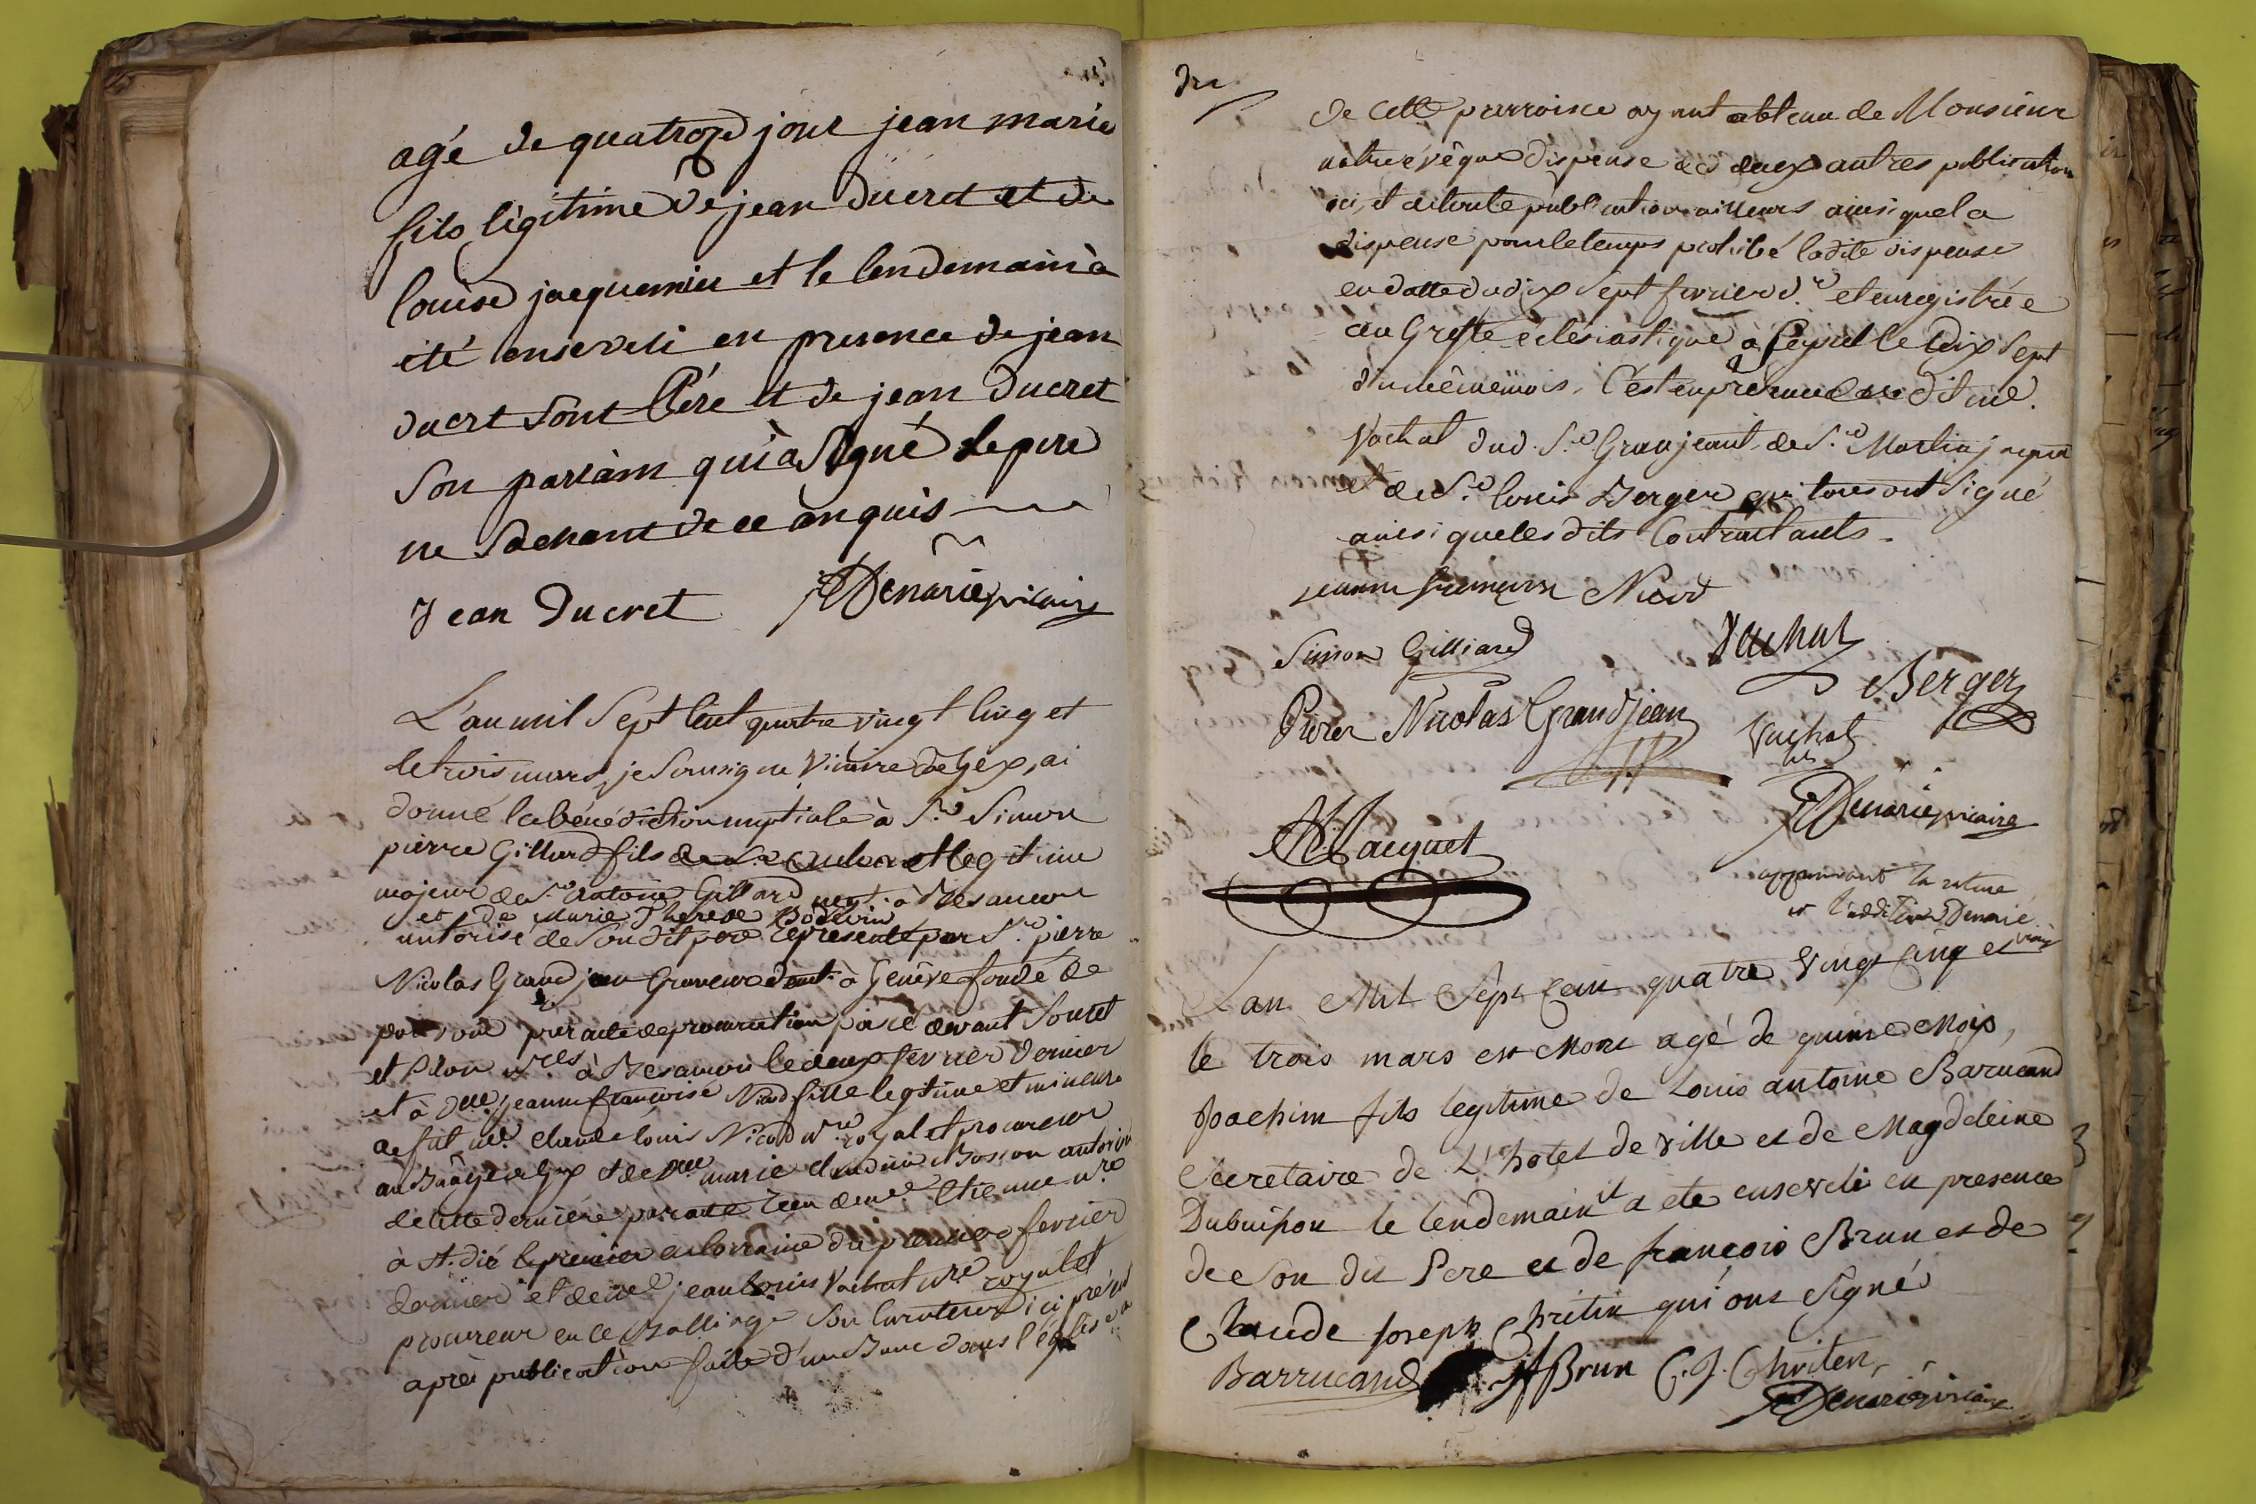 agé de quatroze jour jean marie
fils légitime de jean ducret et de
louise jacquemier et le lendemain à
été enseveli en presence de jean
ducrt sont Pére et de jean ducret
son pariain qui a signé le pere
ne sachant de ce anquis
Jean Ducret Denarié vicaire
L'an mil sept cent quatre vingt cinq et
le trois mars, je soussigné vicaire de Gex, ai
donné la bénédiction nuptiale à Sr. Simon
pierre Gillard fils et legitime
majeur de Sr Antoine Gillard negt. à Besancon
et de Marie Therese
autorisé de son dit pere représenté par Sr. pierre
Nicolas Grandjean Graveur demt. à Genêve fondé de
pouvoir par acte de procuration passé devant
et nres à Besancon le deux fevrier dernier
et à Dlle jeanne françoise Nicod fille legitime et mineure
de fut me. Claude louis Nicod nre royal et procureur
au Baâge de Gex et de Dlle marie claudine Bosson autorisée
de cette derniere par acte recu de me. Etienne nre
à St. dié en lorraine du premier fevrier
dernier et de me jean louis Vachat nre royal et
procureur en ce Balliage son curateur ici présent
après publication faite d'un Banc dans l'église
de cette parroisse ayant obtenu de Monsieur
notre évêque dispense des deux autres publications
ici, et de toute publication ailleurs ainsi que la
dispense pour le temps prohibé ladite dispense
en datte du dix sept fevrier dr. et enregistrée
au Greffe eclésiastique à le dix sept
du même mois. C'est en présence du dit me.
Vachat dud. Sr Granjeant de Sr. Martin
et de Sr. louis Berger qui tous ont signé
ainsi que les dits Contractants.
jeanne francoise Nicod
Simon Gilliard Vachat
Berger
Pierre Nicolas Grandjean Vachat
fils
Denarié vicaire
Jacquet
approuvant la rature
et l'addition Denarié
vicaire
L'an Mil Sept Cent quatre Vingt Cinq et
le trois mars est mort agé de quinse mois,
Joachim fils legitime de Louis antoine Barucand
Secretaire de L'hotel de ville et de Magdeleine
Dubuisson le lendemain il a ete enseveli en presence
de son dit Pere et de françois Brun et de
Claude Joseph Chritin qui ont signé
Barrucand Brun C. J. Chriten
Denarié vicaire